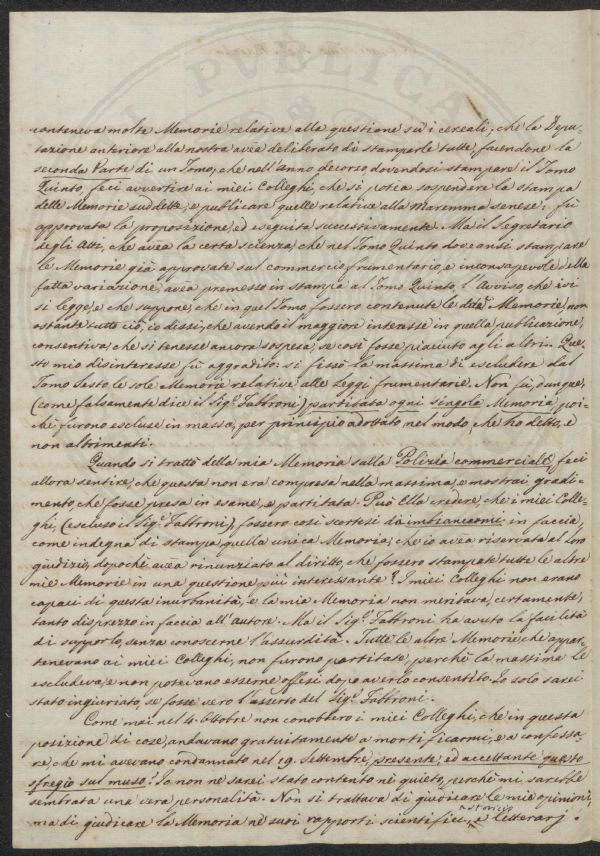 conteneva molte Memorie relative alla questione su i cereali; che la Depu-
tazione anteriore alla nostra avea deliberato di stamparle tutte, facendone la
seconda Parte di un Tomo; che nell'Anno decorso, dovendosi stampare il Tomo
Quinto, feci avvertire ai miei Colleghi, che si potea sospendere la stampa
delle Memorie suddette, e publicare quelle relative alla Maremma senese: fù
approvata la proposizione, ed eseguita successivamente. Ma il Segretario
degli Atti, che avea la certa scienza, che nel Tomo Quinto doveansi stampare
le Memorie già approvate sul commercio frumentario, e inconsapevole della
fatta variazione, avea premesso in stampa al Tomo Quinto, l'Avviso, che ivi
si legge, e che suppone, che in quel Tomo fossero contenute le dette Memorie; non
ostante tutto ciò, io dissi, che avendo il maggiore interesse in quella publicazione,
consentiva, che si tenesse ancora sospesa, se così fosse piaciuto agli altri. Que-
sto mio disinteresse fù aggradito: si fissò la massima di escludere dal
Tomo Sesto le sole Memorie relative alle Leggi frumentarie. Non fù, dunque,
(come falsamente dice il Sig.r Fabbroni) partitata ogni singola Memoria, poi-
chè furono escluse in massa, per principio adottato nel modo, che ho detto, e
non altrimenti.
Quando si trattò della mia Memoria sulla Polizia commerciale, feci
allora sentire, che questa non era compresa nella massima, e mostrai gradi-
mento, che fosse presa in esame, e partitata. Può Ella credere, che i miei Colle-
ghi, (escluso il Sig.r Fabbroni), fossero così scortesi da imbiancarmi in faccia,
come indegna di stampa, quella unica Memoria, che io avea riservata al loro
giudizio, dopochè avea rinunziato al diritto, che fossero stampate tutte le altre
mie Memorie in una questione più interessante? I miei Colleghi non erano
capaci di questa inurbanità, e la mia Memoria non meritava, certamente,
tanto disprezzo in faccia all'autore. Ma il Sig.r Fabbroni ha avuto la facilità
di supporlo, senza conoscerne l'assurdità. Tutte le altre Memorie, che appar-
tenevano ai miei Colleghi, non furono partitate, perchè la massima le
escludeva, e non potevano esserne offesi dopo averlo consentito. Io solo sarei
stato ingiuriato, se fosse vero l'asserto del Sig.r Fabbroni.
Come mai nel 4. Ottobre non conobbero i miei Colleghi, che in questa
posizione di cose, andavano gratuitamente a mortificarmi, e a confessa-
re, che mi avevano condannato nel 19. Settembre, presente, ed accettante questo
sfregio sul muso? Io non ne sarei stato contento nè quieto, perchè mi sarebbe
sembrata una vera personalità. Non si trattava di giudicare le mie opinioni,
ma di giudicare la Memoria ne' suoi rapporti scientifici, e letterarj.